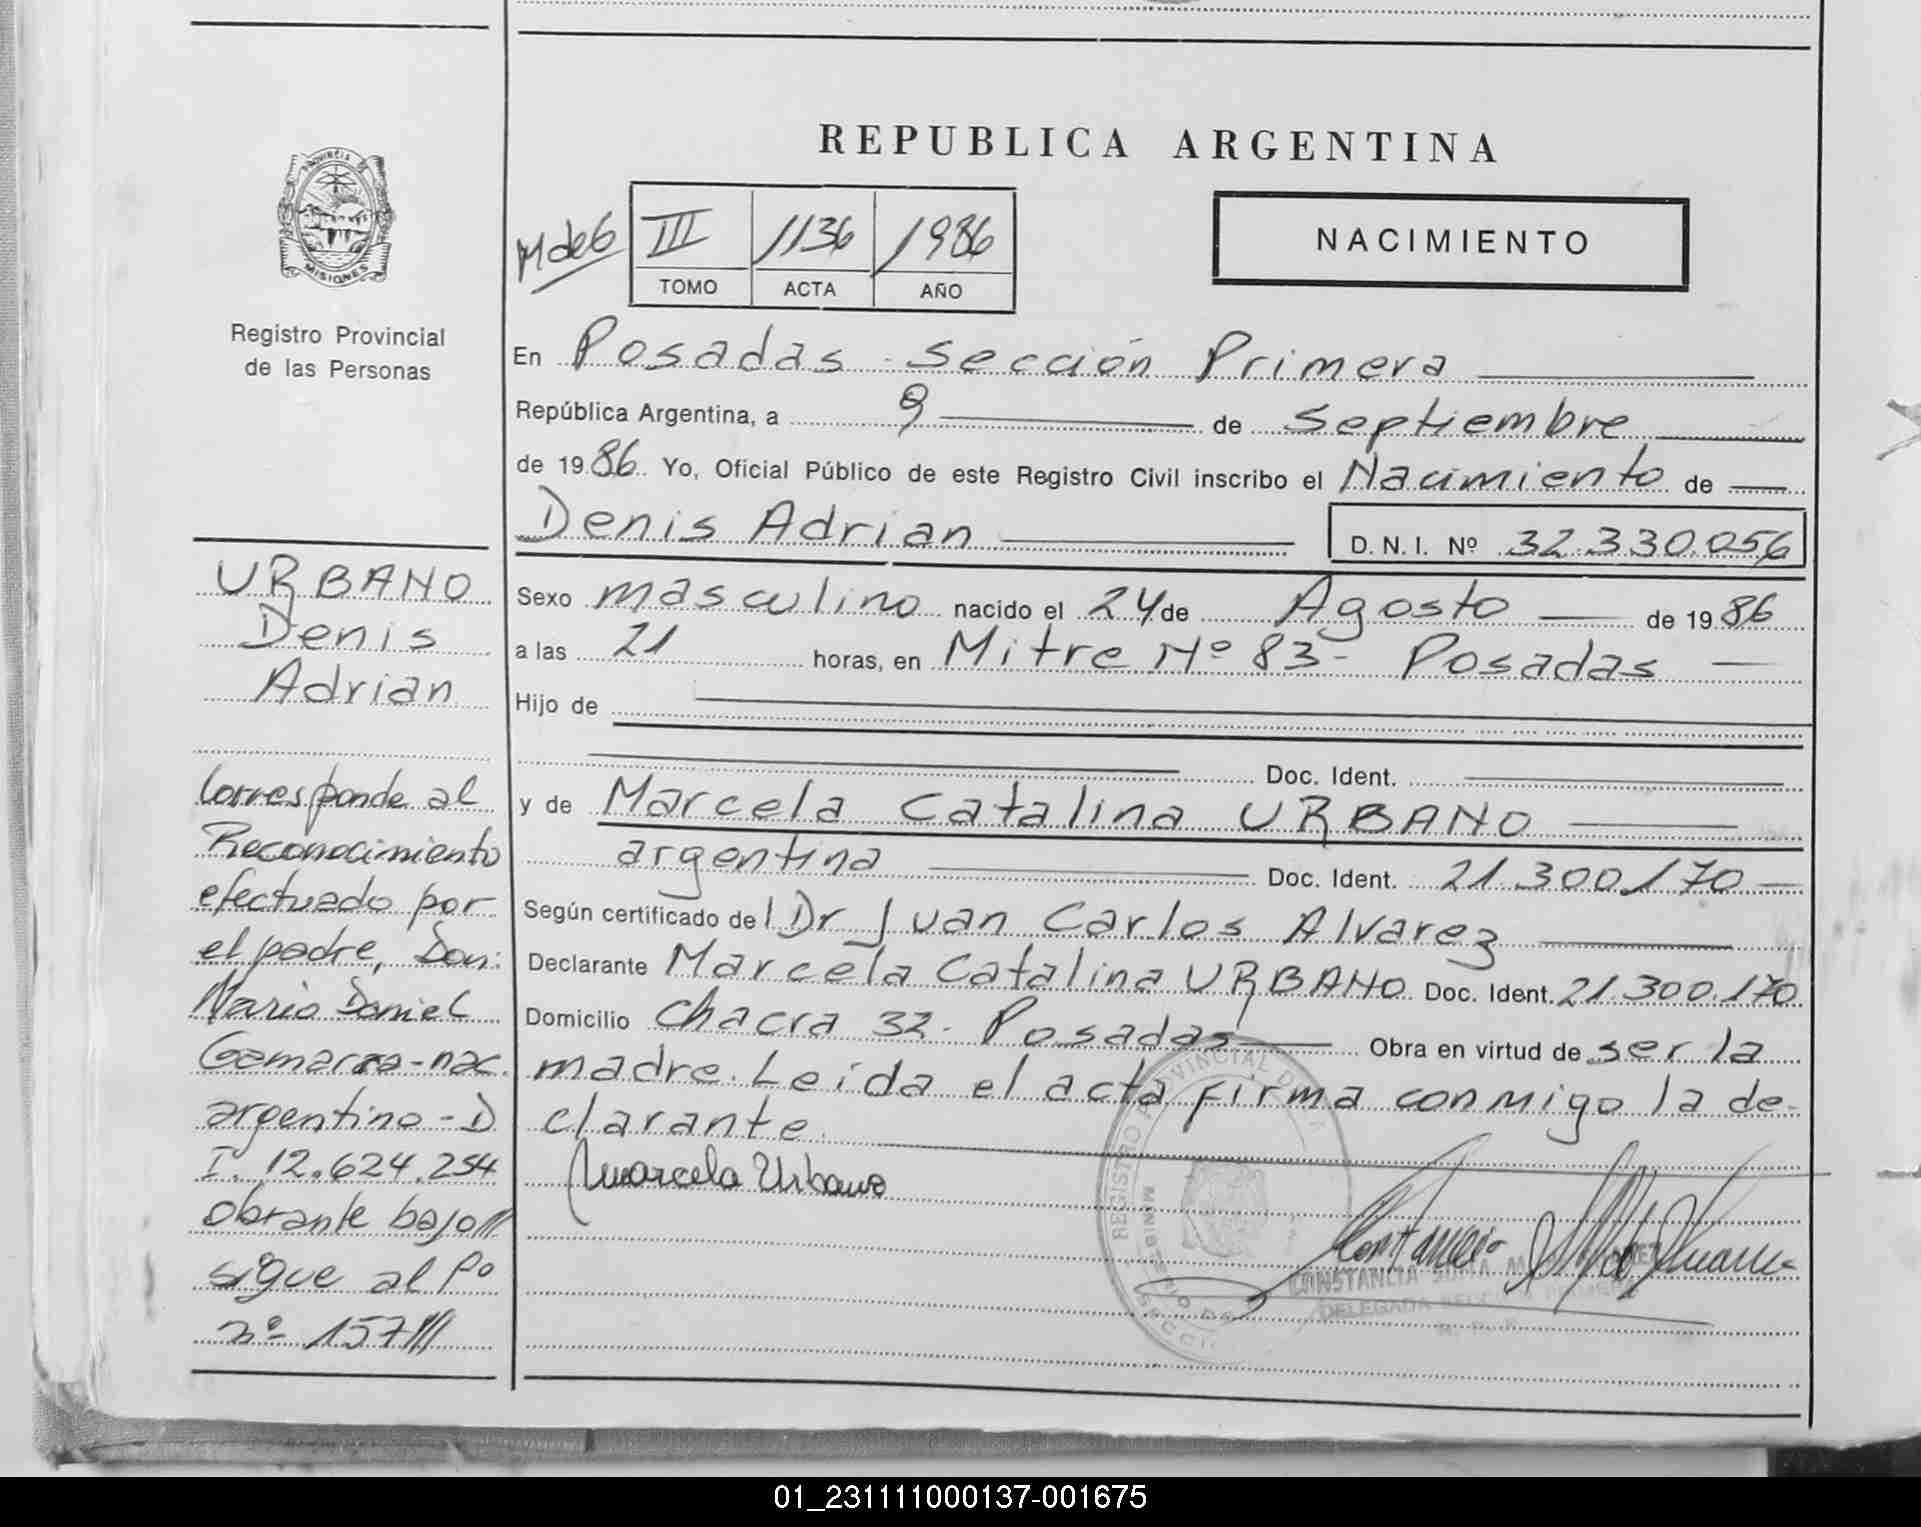 REPUBLICA ARGENTINA
PROVINCIA DE
MISIONES
Registro Provincial
de las Personas
M de G
III 1136 1986
TOMO ACTA AÑO
NACIMIENTO
En Posadas - Sección Primera
República Argentina, a 9 de Septiembre
de 1986 Yo, Oficial Público de este Registro Civil inscribo el Nacimiento de
Denis Adrian D.N.I. Nº 32.330.056
Sexo masculino nacido el 24 de Agosto de 1986
a las 21 horas, en Mitre Nº 83 - Posadas
Hijo de
Doc. Ident.
y de Marcela Catalina URBANO
argentina Doc. Ident. 21.300.170
Según certificado del Dr Juan Carlos Alvarez
Declarante Marcela Catalina URBANO Doc. Ident. 21.300.170
Domicilio Chacra 32 - Posadas Obra en virtud de ser la
madre. Leída el acta firma conmigo la de-
clarante.
Marcela Urbano
REGISTRO PROVINCIAL DE
CONSTANCIA
DELEGADA SECCION PRIMERA
URBANO
Denis
Adrian
Corresponde al
Reconocimiento
efectuado por
el padre, Don:
Mario Daniel
Gamarra - nac.
argentino - D
I. 12.624.254
obrante bajo///
sigue al Fº
nº 157///
01_231111000137-001675